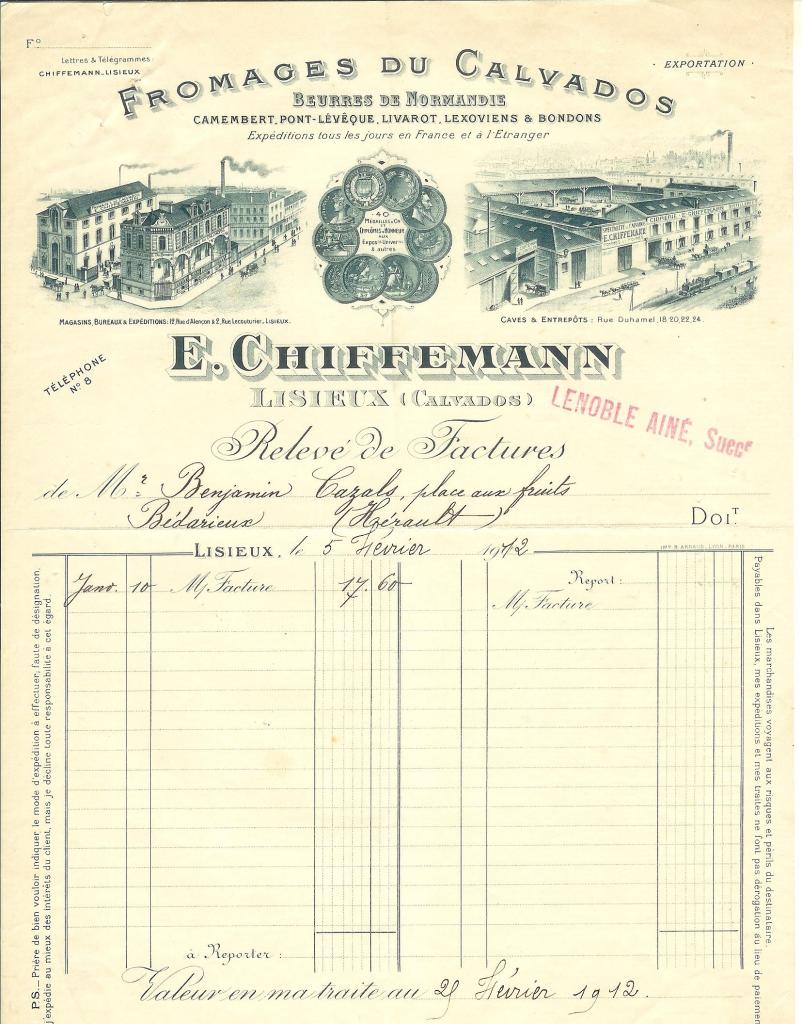 Fº
Lettres & Télégrammes
CHIFFEMANN_LISIEUX
· EXPORTATION ·
FROMAGES DU CALVADOS
BEURRES DE NORMANDIE
CAMEMBERT, PONT-LÉVÊQUE, LIVAROT, LEXOVIENS & BONDONS
Expéditions tous les jours en France et à l'Etranger
40
MÉDAILLES d'OR
DIPLÔMES d'HONNEUR
AUX
Exposons Univerlles
& autres
E. CHIFFEMANN
MAGASINS, BUREAUX & EXPÉDITIONS: 12, Rue d'Alençon & 2, Rue Lecouturier_LISIEUX.
CAVES & ENTREPÔTS : Rue Duhamel, 18.20.22.24.
E. CHIFFEMANN
TÉLÉPHONE
Nº 8
LISIEUX (CALVADOS)
LENOBLE AINÉ, Succr
Relevé de Factures
de Mr Benjamin Cazals, place aux fruits
Bédarieux (Hérault)
DOIT.
LISIEUX, le 5 Février 1912
IMP. B. ARNAUD, LYON-PARIS
Janv. 10 M/ Facture 17.60
Report :
M/ Facture
à Reporter :
Valeur en ma traite au 25 Février 1912.
PS._ Prière de bien vouloir indiquer le mode d'expédition à effectuer, faute de désignation,
j'expédie au mieux des intérêts du client, mais je décline toute responsabilité à cet égard.
Les marchandises voyagent aux risques et périls du destinataire.
Payables dans Lisieux, mes expéditions et mes traites ne font pas dérogation au lieu de paiement